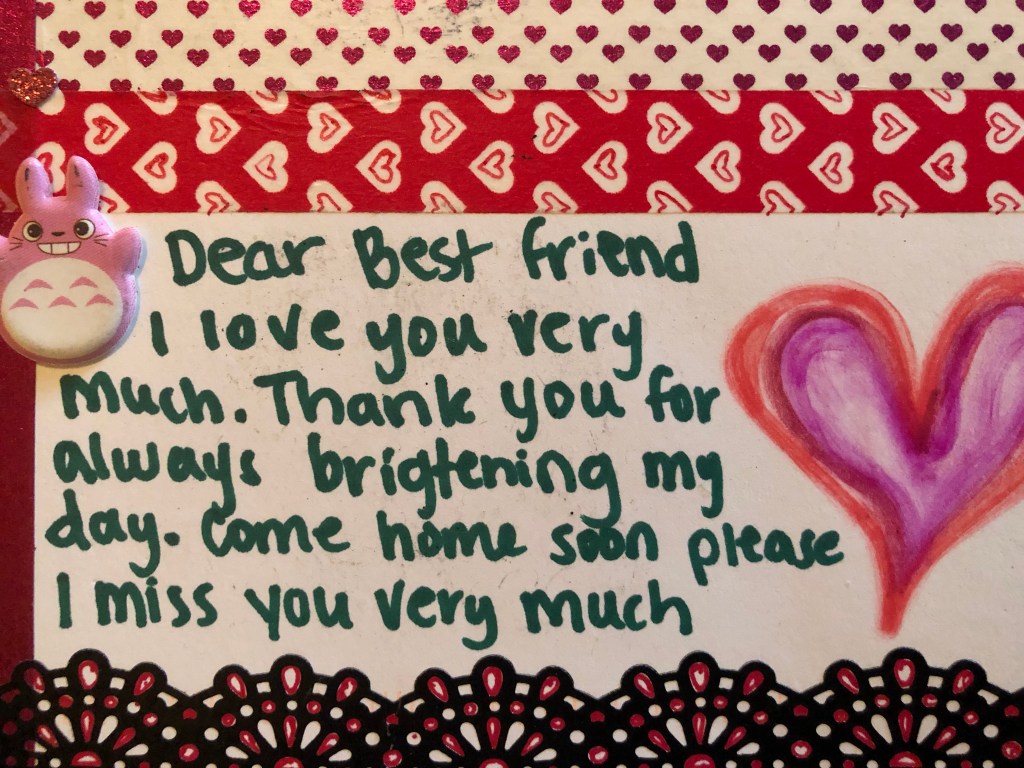 Dear Best friend
I love you very
much. Thank you for
always brigtening my
day. Come home soon please
I miss you very much